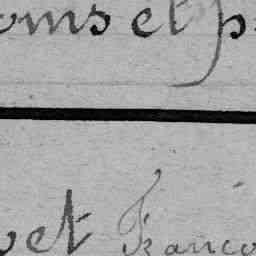 oms et p
vet Franço